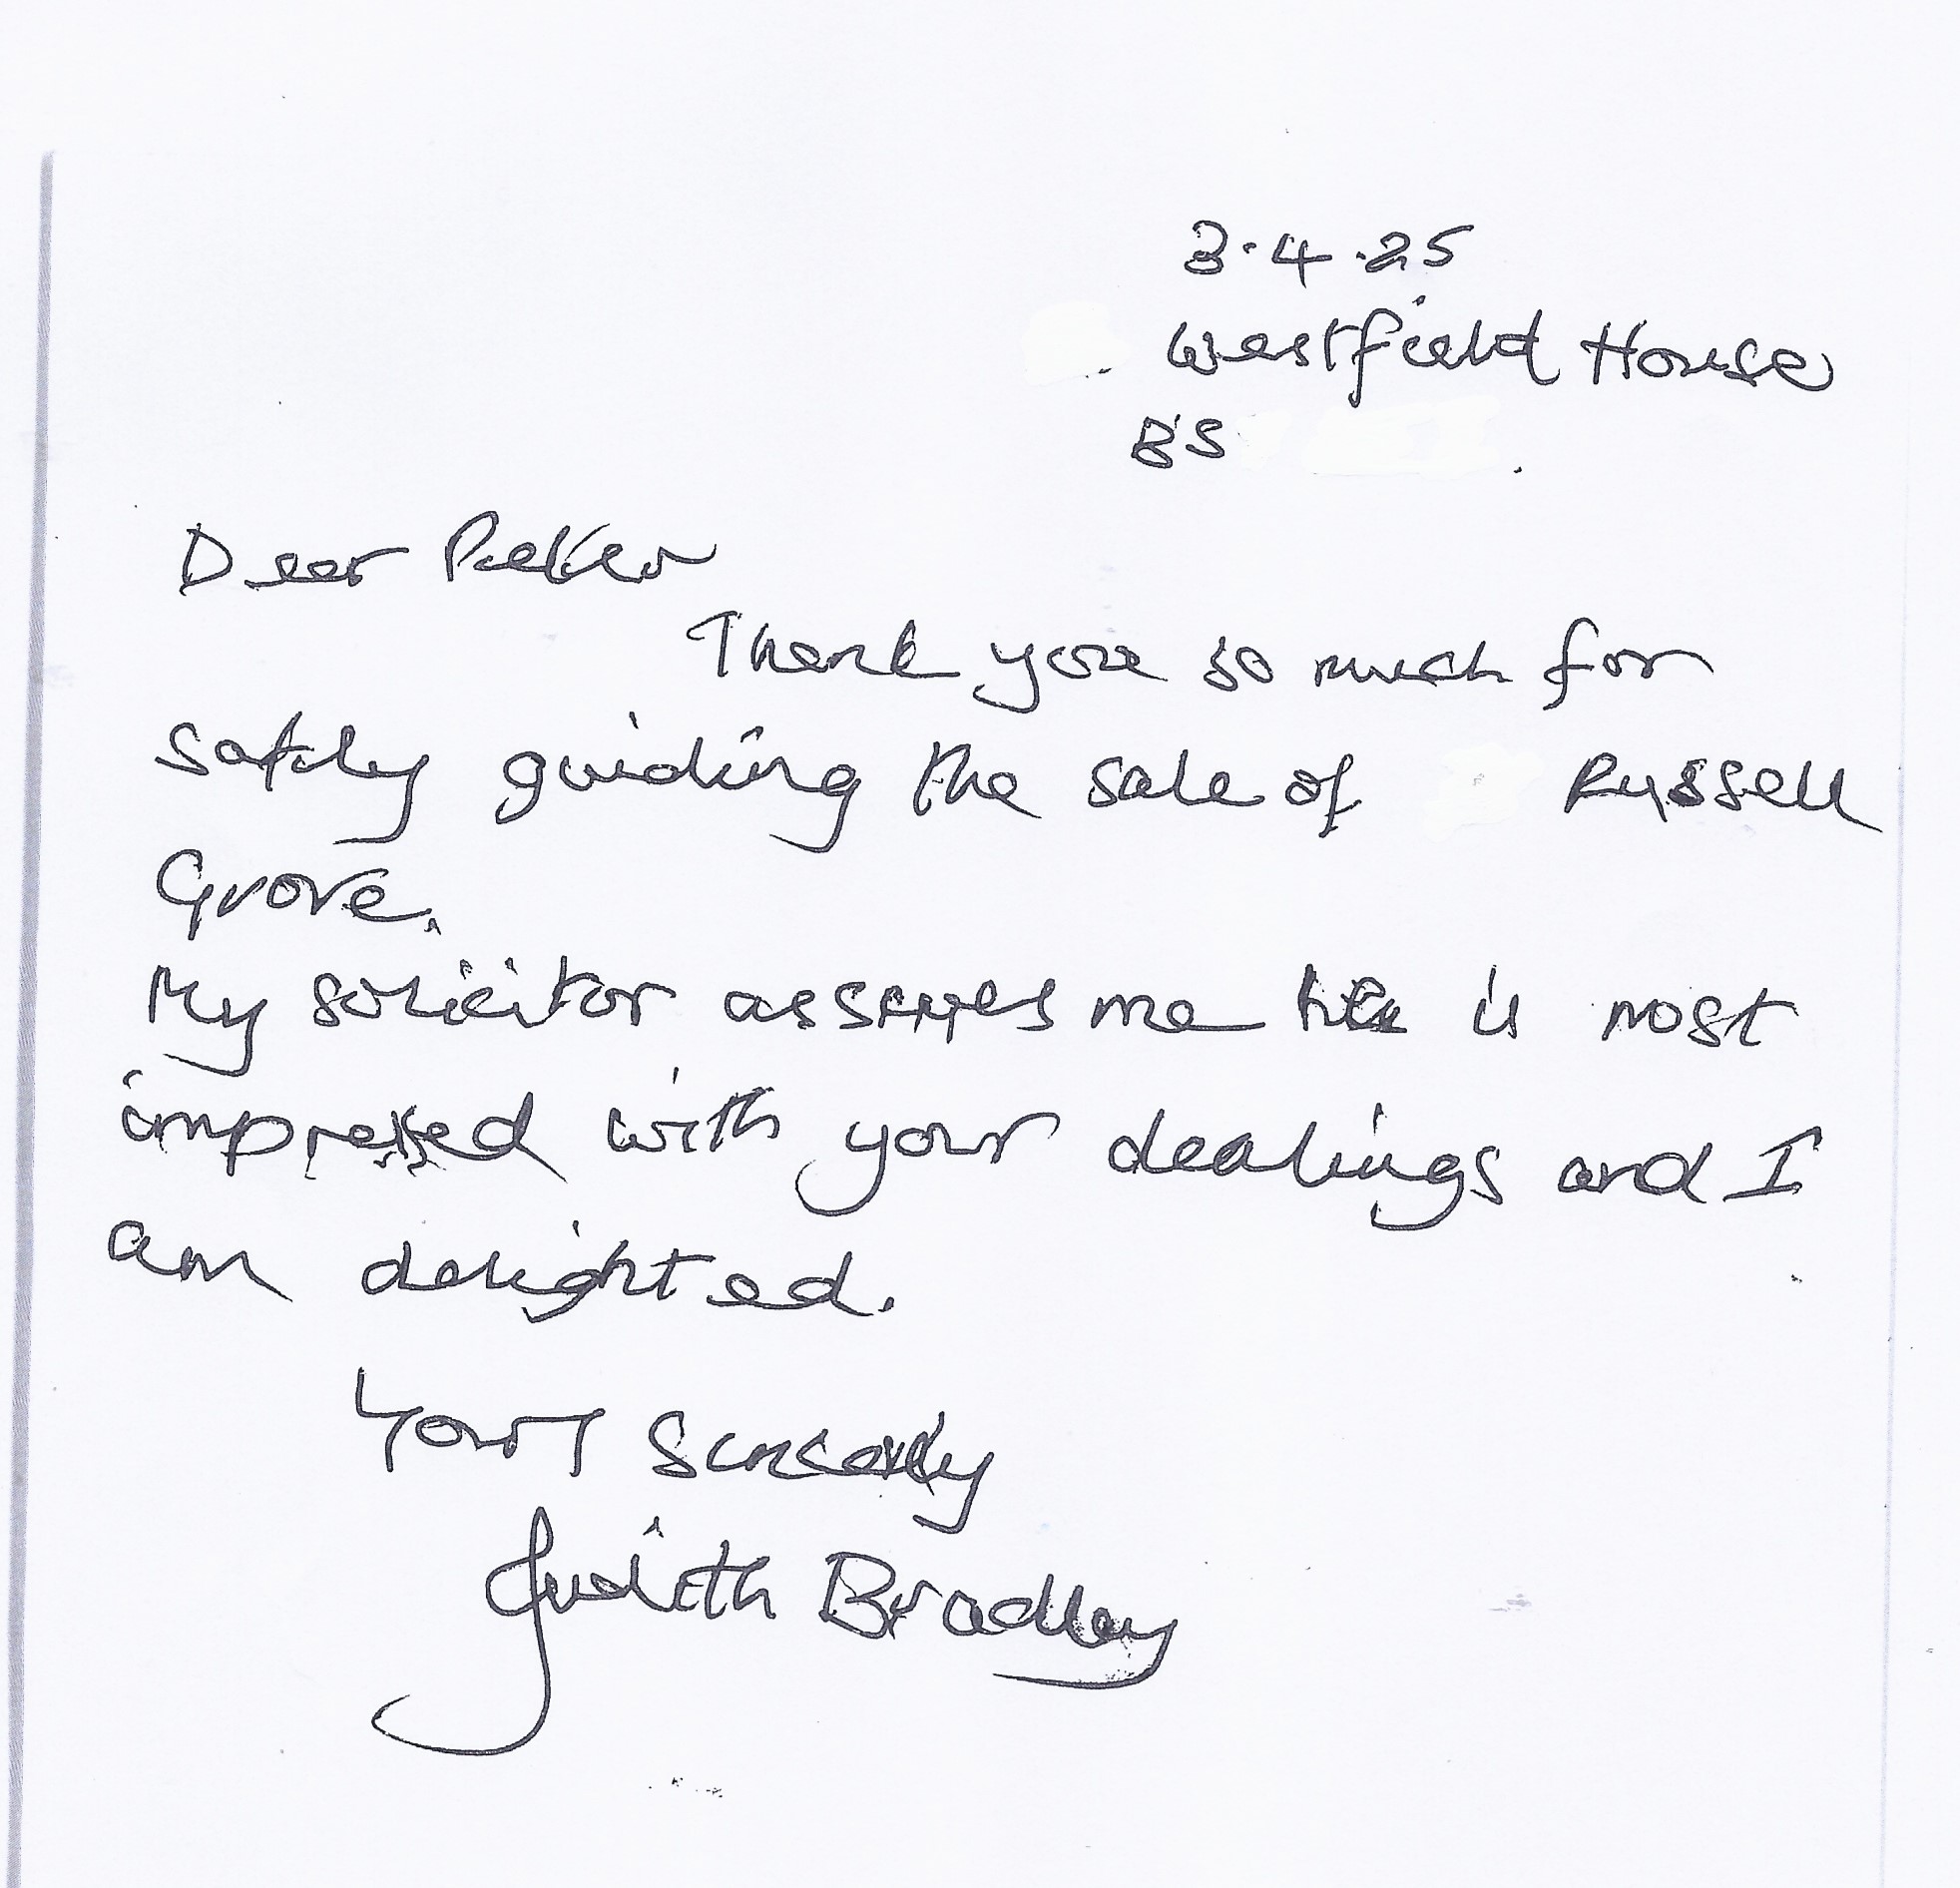 3.4.25
Westfield House
BS
Dear Peter
Thank you so much for
safely guiding the sale of Russell
Grove.
My solicitor assures me he is most
impressed with your dealings and I
am delighted.
Yours sincerely
Judith Bradley